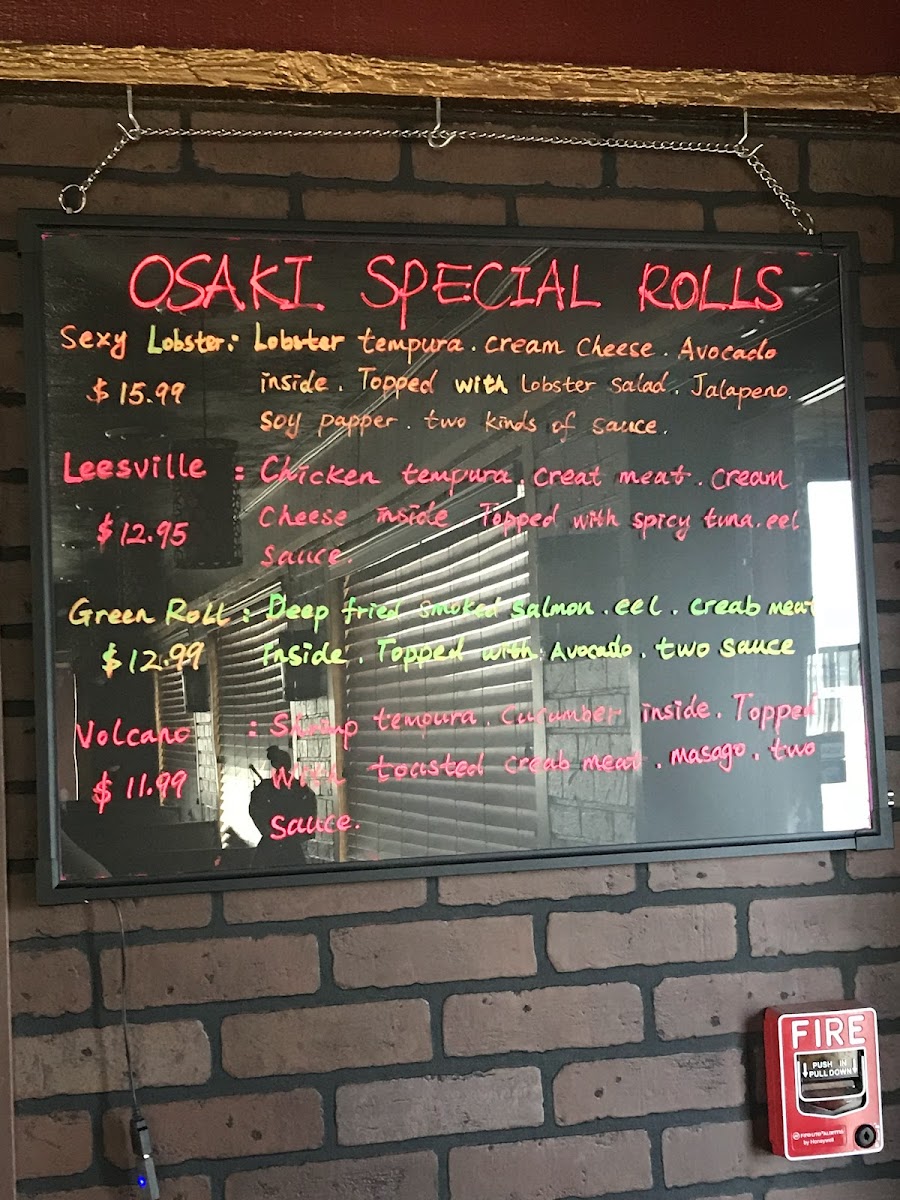 OSAKI SPECIAL ROLLS
Sexy Lobster: Lobster tempura. cream Cheese. Avocado
$15.99 inside. Topped with Lobster salad. Jalapeno.
Soy papper. two kinds of sauce.
Leesville : Chicken tempura. creat meat. cream
$12.95 Cheese inside Topped with spicy tuna. eel
Sauce.
Green Roll : Deep fried smoked salmon. eel. creab meat
$12.99 inside. Topped with Avocado. two sauce
Volcano : Shrimp tempura. Cucumber inside. Topped
$11.99 with toasted creab meat. masago. two
Sauce.
FIRE
PUSH IN
PULL DOWN
by Honeywell